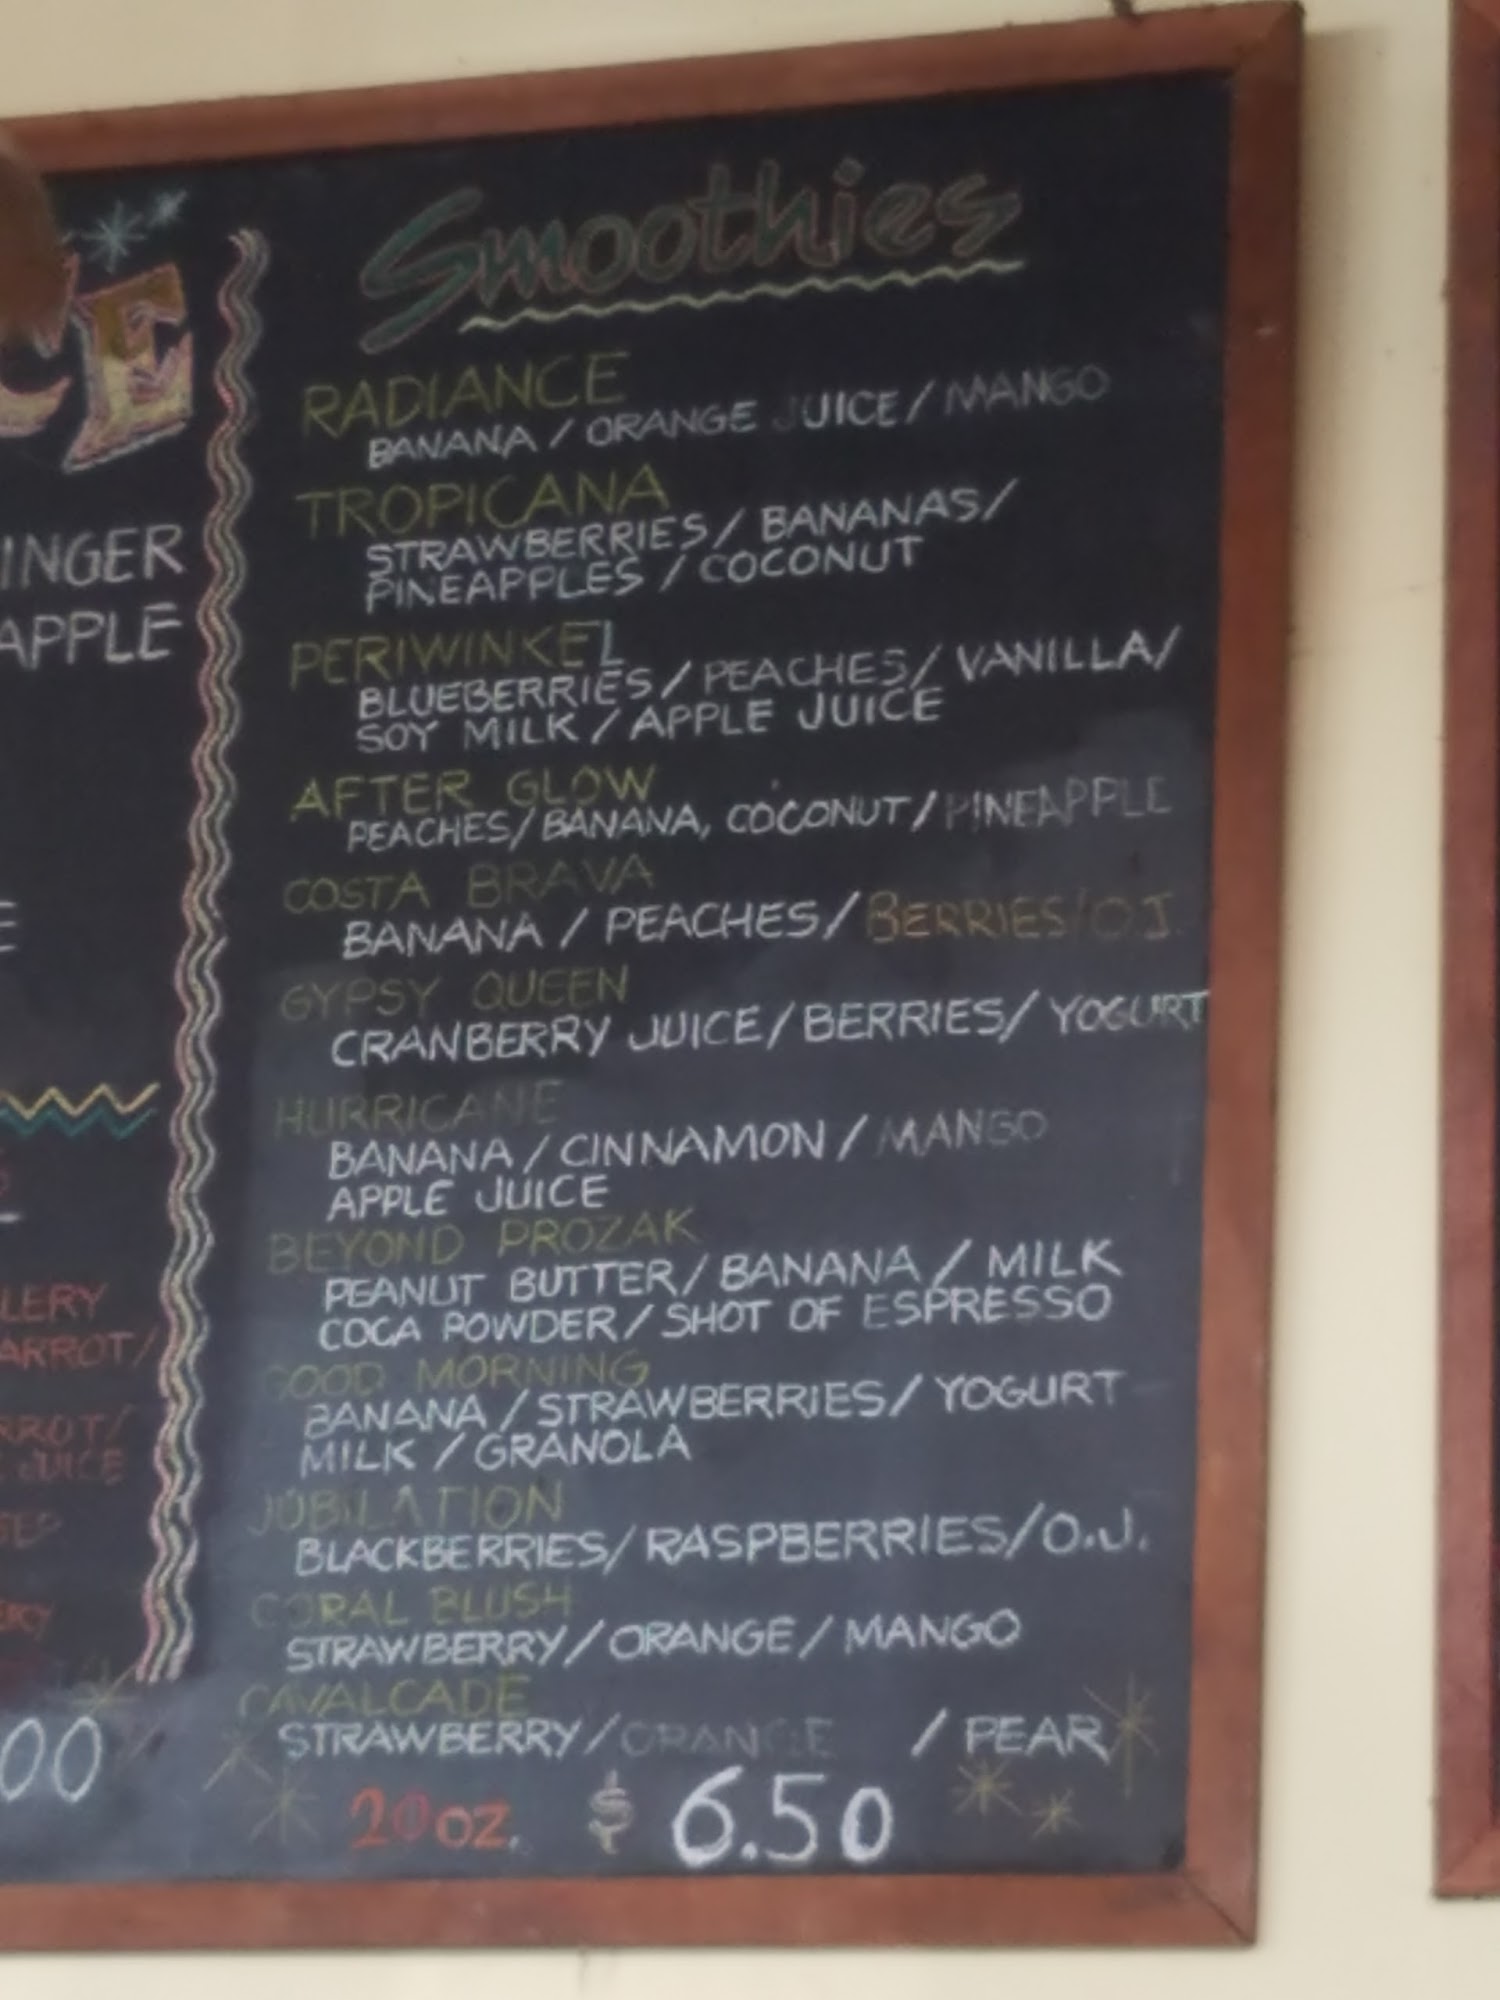 CE
INGER
APPLE
E
LERY
ARROT/
RROT/
JUICE
00
Smoothies
RADIANCE
BANANA / ORANGE JUICE / MANGO
TROPICANA
STRAWBERRIES / BANANAS /
PINEAPPLES / COCONUT
PERIWINKEL
BLUEBERRIES / PEACHES / VANILLA /
SOY MILK / APPLE JUICE
AFTER GLOW
PEACHES / BANANA, COCONUT / PINEAPPLE
COSTA BRAVA
BANANA / PEACHES / BERRIES / O.J.
GYPSY QUEEN
CRANBERRY JUICE / BERRIES / YOGURT
HURRICANE
BANANA / CINNAMON / MANGO
APPLE JUICE
BEYOND PROZAK
PEANUT BUTTER / BANANA / MILK
COCA POWDER / SHOT OF ESPRESSO
GOOD MORNING
BANANA / STRAWBERRIES / YOGURT
MILK / GRANOLA
JUBILATION
BLACKBERRIES / RASPBERRIES / O.J.
CORAL BLUSH
STRAWBERRY / ORANGE / MANGO
CAVALCADE
STRAWBERRY / ORANGE / PEAR
20 OZ. $ 6.50